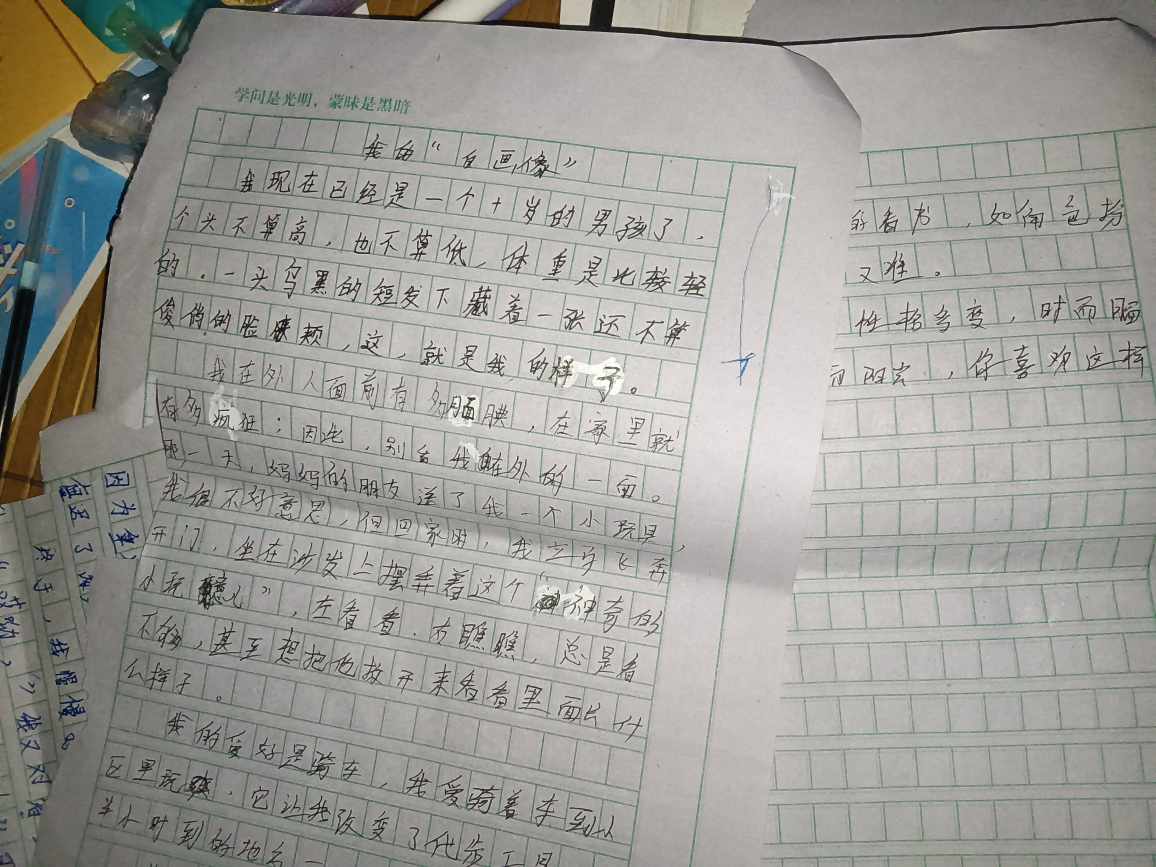 学问是光明，蒙昧是黑暗
我的“自画像”
我现在已经是一个十岁的男孩了，
个头不算高，也不算低，体重是比较轻
的。一头乌黑的短发下藏着一张还不算
俊俏的脸颊，这，就是我的样子。
我在外人面前有多腼腆，在家里就
有多疯狂；因此，别看我在外的一面。
那一天，妈妈的朋友送了我一个小玩具，
我很不好意思，但回家时，我立字飞奔
开门，坐在沙发上摆弄着这个“神奇的
小玩意儿”，左看看，右瞧瞧，总是看
不够，甚至想把他放开来看看里面长什
么样子。
我的爱好是骑车，我爱骑着车到小
区里玩，它让我改变了代步工具
半小时到的地方一
的看书，如何包扮
又难。
性格多变，时而腼
你喜欢这样
因为
值足了
终于，我慢慢
我又对